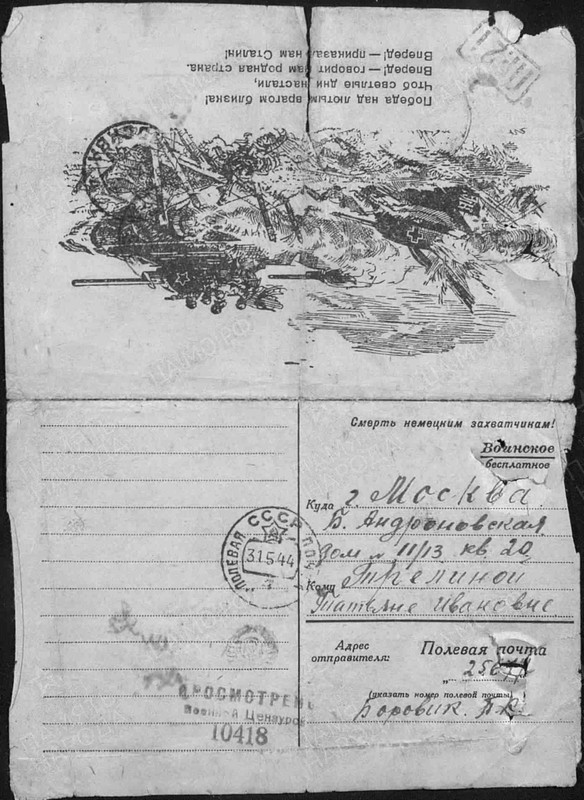 Победа над лютым врагом близка!
Чтоб светлые дни настали,
Вперед!—говорит нам родная страна.
Вперед!—приказал нам Сталин!
Смерть немецким захватчикам!
Воинское
бесплатное
Куда г. Москва
Б. Андроновская
дом № 11/13 кв. 20
Кому Трелиной
Татьяне Ивановне
ПОЛЕВАЯ СССР
31.5.44
Адрес отправителя:
Полевая почта
(указать номер полевой почты)
Боровик
ПРОСМОТРЕНО
Военной Цензурой
10418